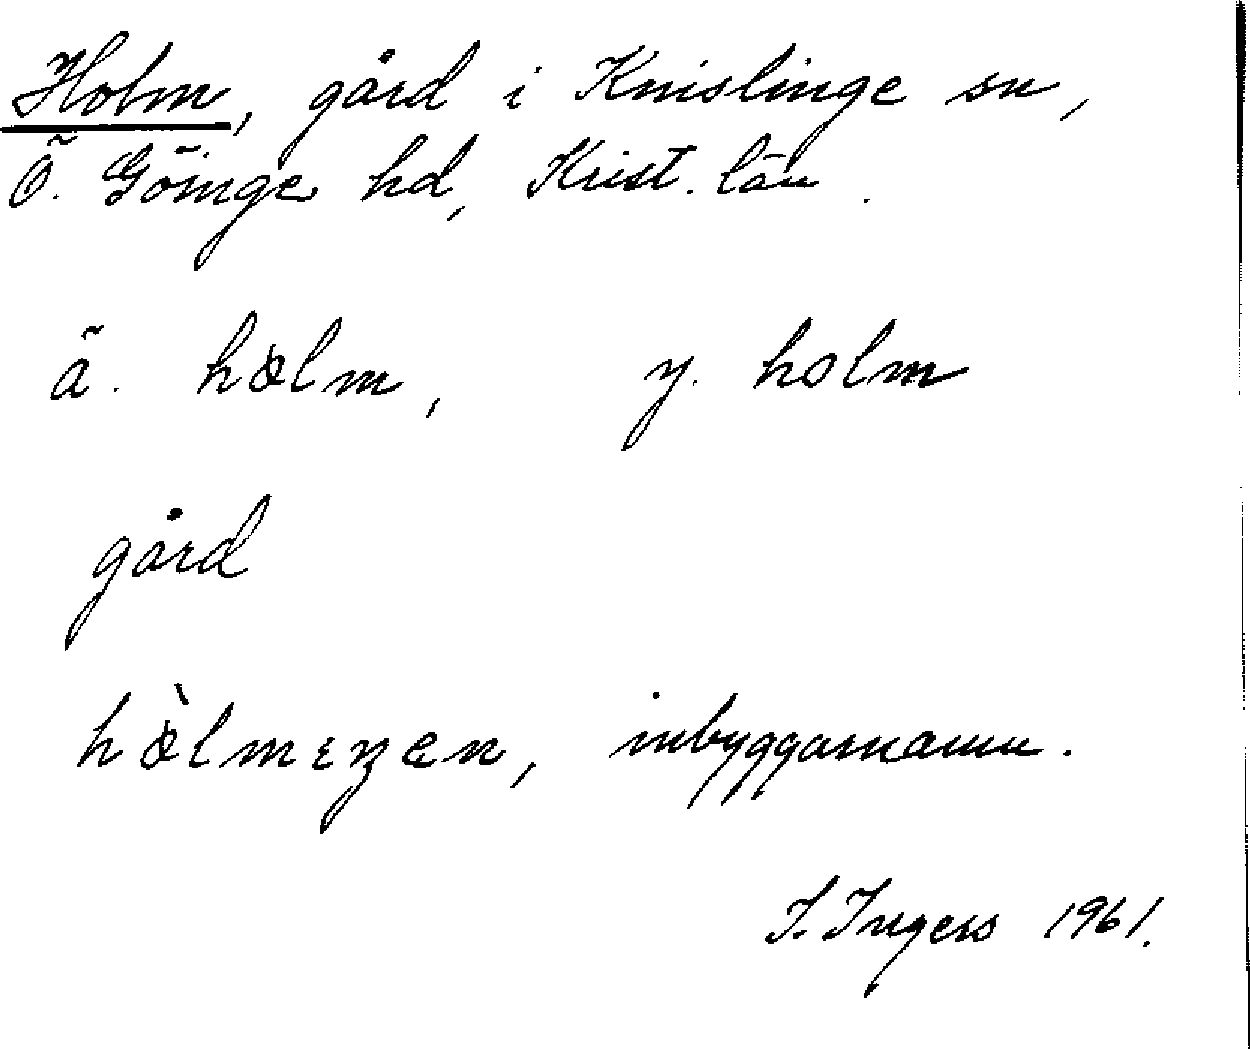 Holm, gård i Knislinge sn,
Ö. Göinge hd, Krist. län.
ä. hɔlm, y. holm
gård
inbyggarnamn.
I. Ingers 1961.